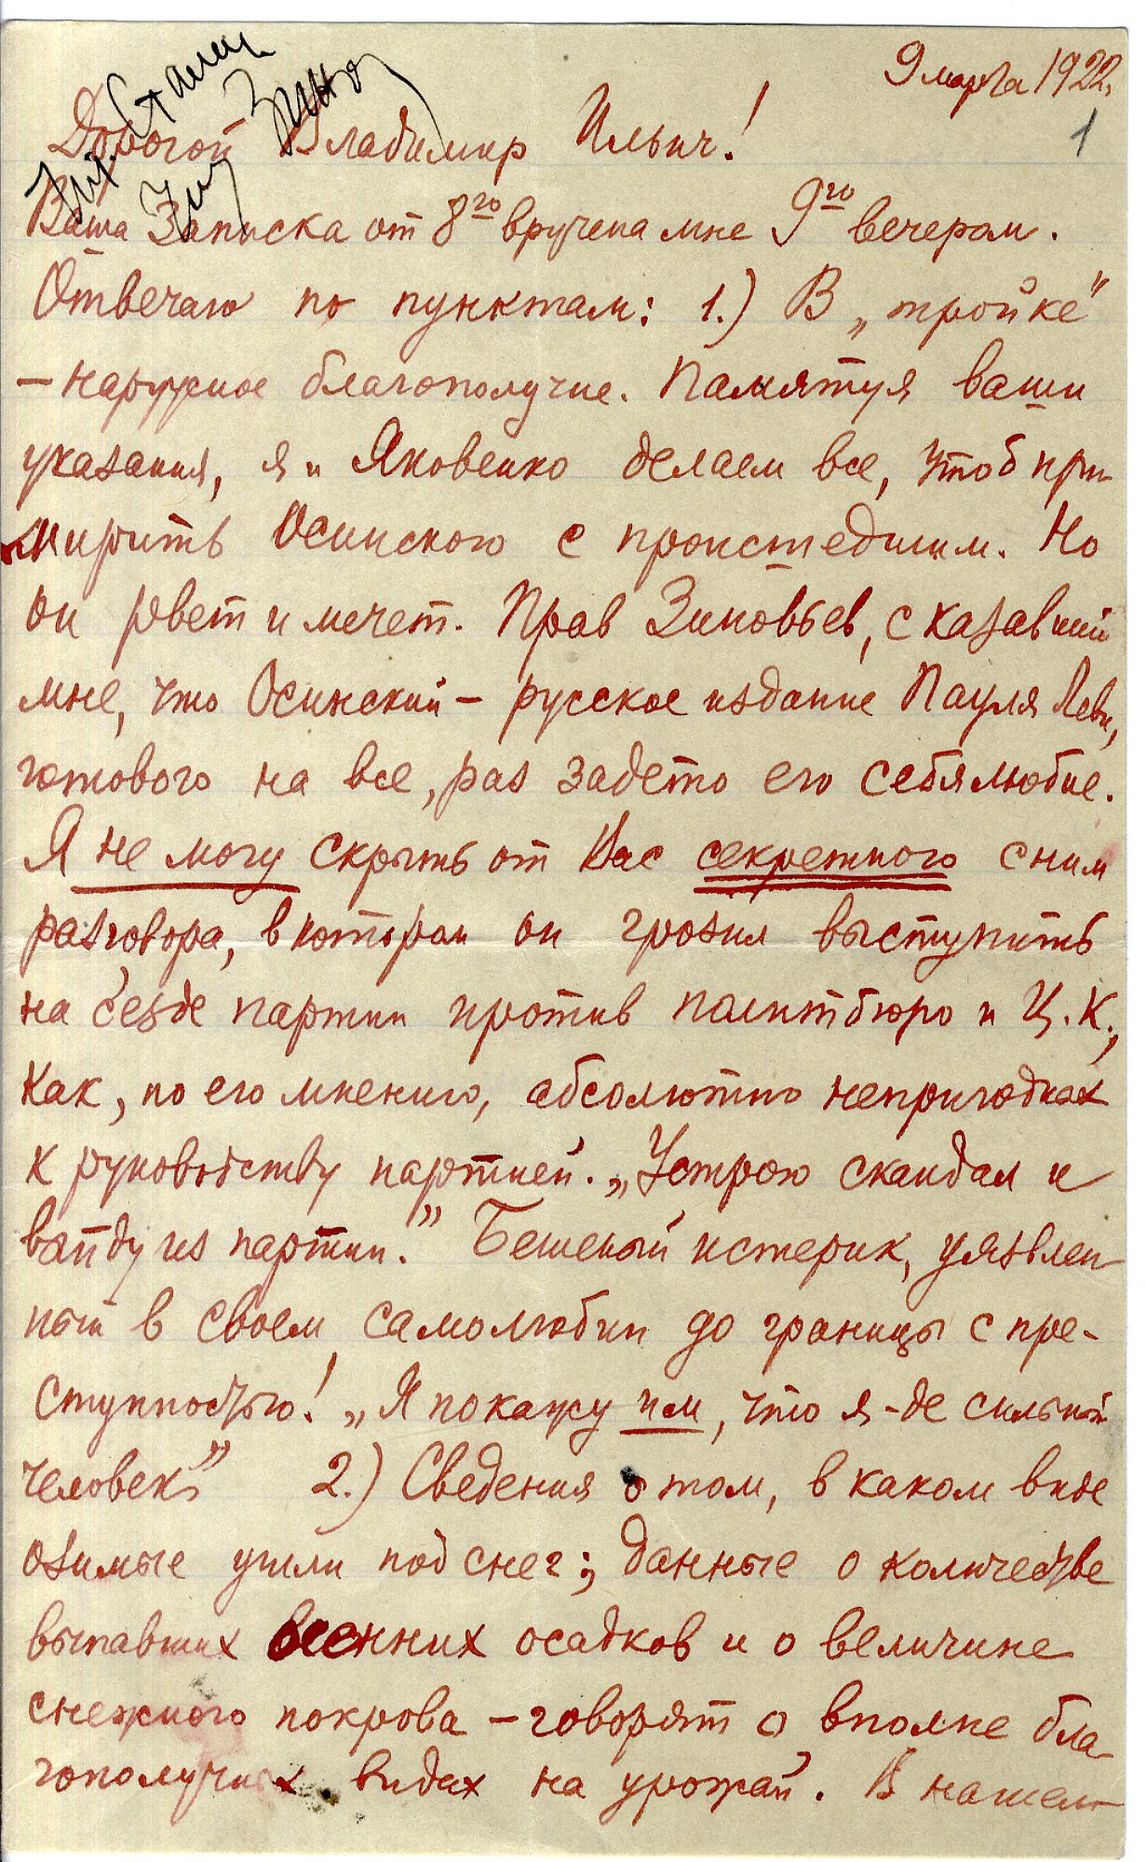 9 марта 1922.
1
Дорогой Владимир Ильич!
Ваша Записка от 8го вручена мне 9го вечером.
Отвечаю по пунктам: 1.) В „тройке"
— наружное благополучие. Памятуя ваши
указания, я и Яковенко делаем все, чтоб при-
мирить Осинского с происшедшим. Но
он рвет и мечет. Прав Зиновьев, сказавший
мне, что Осинский — русское издание Пауля Леви,
готового на все, раз задето его себялюбие.
Я не могу скрыть от Вас секретного с ним
разговора, в котором он грозил выступить
на с'езде партии против политбюро и Ц.К.,
как, по его мнению, абсолютно непригодных
к руководству партией. „Устрою скандал и
выйду из партии." Бешеный истерик, уязвлен-
ный в своем самолюбии до границы с пре-
ступностью! „Я покажу им, что я-де сильный
человек" 2.) Сведения о том, в каком виде
озимые ушли под снег; данные о количестве
выпавших осенних осадков и о величине
снежного покрова — говорят о вполне бла-
гополучных видах на урожай. В нашем